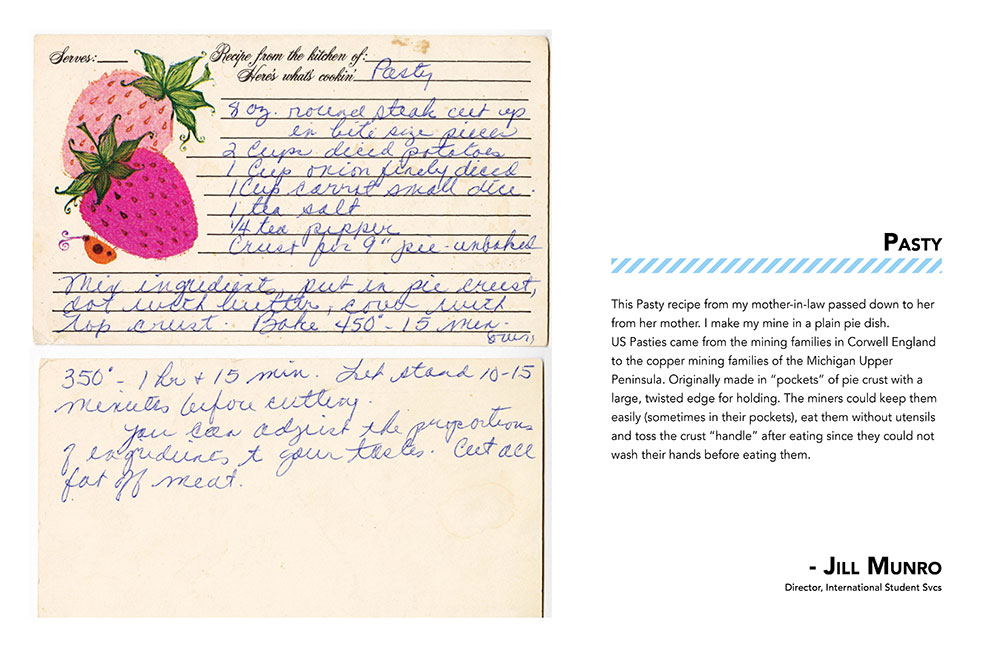 Serves:
Recipe from the kitchen of:
Here's what's cookin' Pasty
8 oz. round steak cut up
in bite size pieces
2 Cups diced potatoes
1 Cup onion finely diced
1 Cup carrot small dice.
1 tea salt
1/4 tea pepper
Crust for 9" pie-unbaked
Mix ingredients, put in pie crust,
dot with butter, cover with
top crust. Bake 450° - 15 min-
350° - 1 hr + 15 min. Let stand 10-15
minutes before cutting.
You can adjust the proportions
of ingredients to your tastes. Cut all
fat off meat.
PASTY
This Pasty recipe from my mother-in-law passed down to her
from her mother. I make my mine in a plain pie dish.
US Pasties came from the mining families in Corwell England
to the copper mining families of the Michigan Upper
Peninsula. Originally made in “pockets” of pie crust with a
large, twisted edge for holding. The miners could keep them
easily (sometimes in their pockets), eat them without utensils
and toss the crust “handle” after eating since they could not
wash their hands before eating them.
- JILL MUNRO
Director, International Student Svcs